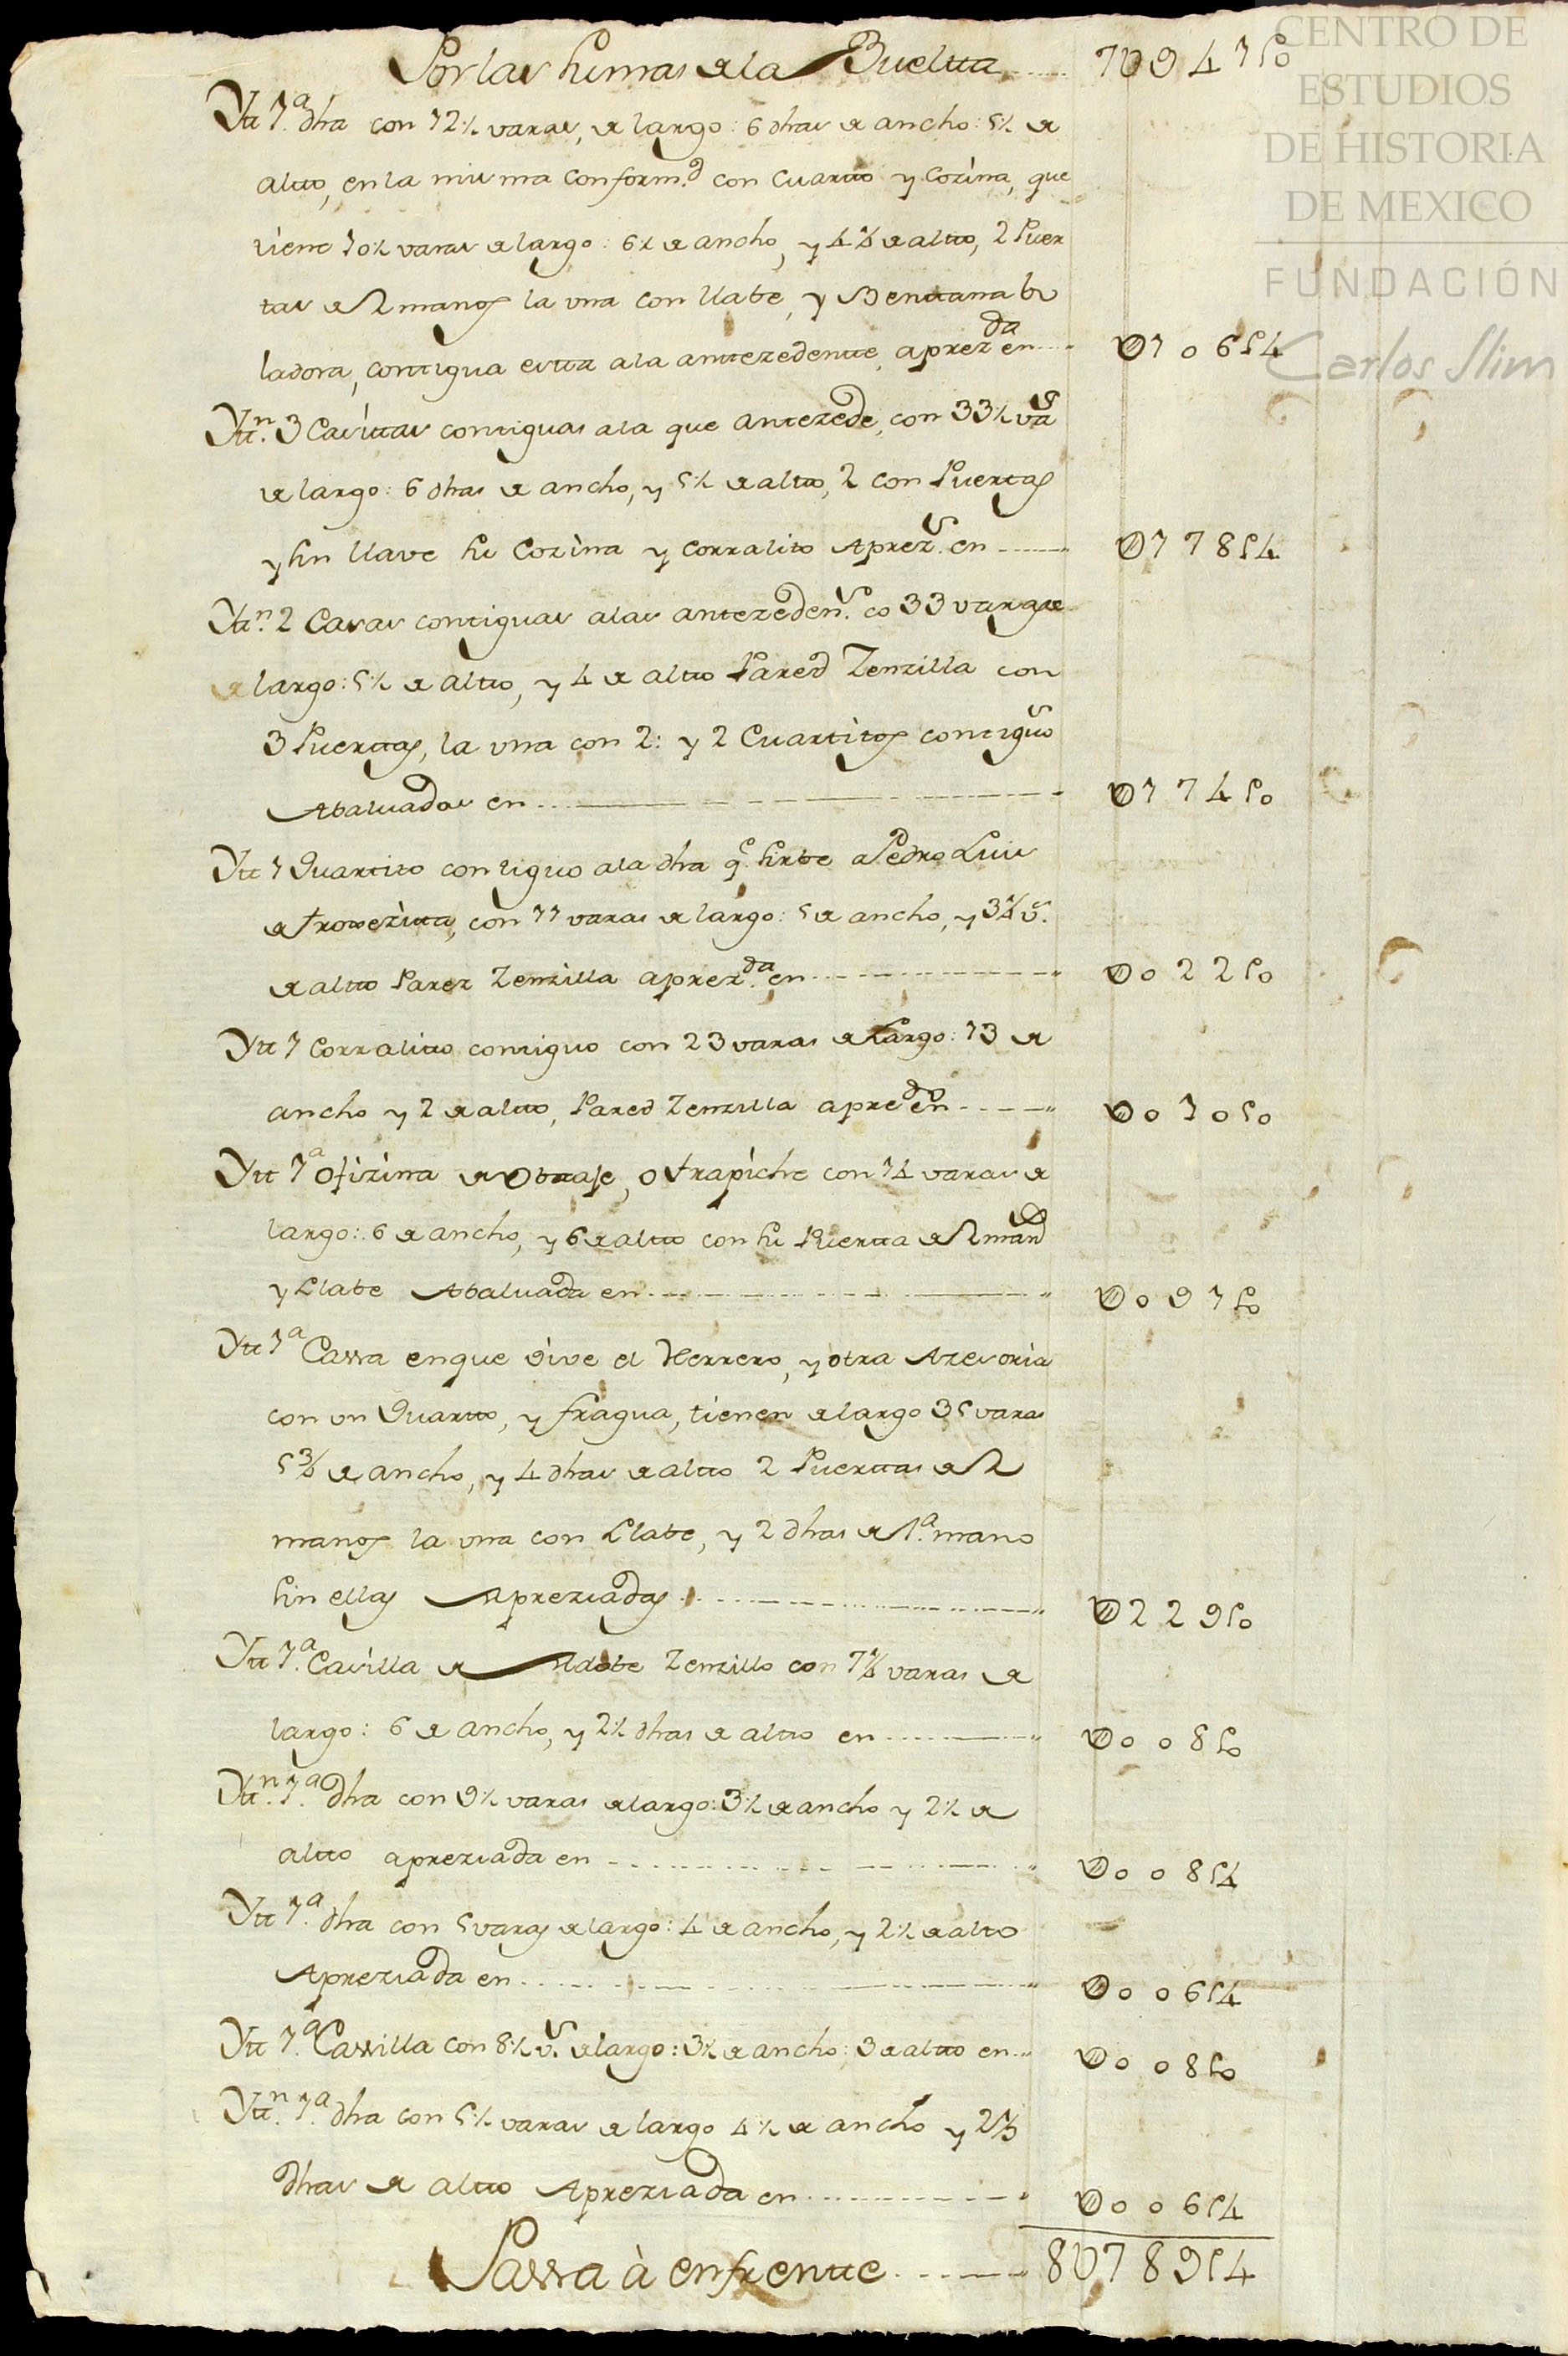 Por las sumas de la Buelta 7U941p0
Ytt 1ª dha con 12½ varas, de largo: 6 dhas de ancho: 5½ de
altto, en la misma conform.d con cuartto y cozina, que
tiene 10½ varas de largo: 6½ de ancho, y 4¼ de altto, 2 Puer
tas de 2 manos la vna con llabe, y Benttana bo
ladora, contigua estta ala anttezedentte, aprez.da en U106p4
Ytt.n 3 Casittas contiguas ala que antezede, con 33½ va.s
de largo: 6 dhas de ancho, y 5½ de altto, 2 con Puertas
y sin llave su Cozina y corralito Aprez.s en U178p4
Ytt.n 2 Casas contiguas alas antezeden.s co 33 varas de
de largo: 5½ de altto, y 4 de altto Pared Zenzilla con
3 Puerttas, la vna con 2: y 2 Cuartitos contiguos
Abaluadas en U174p0
Ytt 1 Quartito contiguo ala dha q.e sirbe a Pedro Luis
de trowezitta, con 11 varas de largo: 5 de ancho, y 3¼ v.s
de altto Parez Zenzilla aprez.da en U022p0
Ytt 1 Corralitto contiguo con 23 varas de Largo: 13 de
ancho y 2 de altto, Pared Zenzilla apre.do en U010p0
Ytt 1ª Ofizina de Obraje, o trapiche con 14 varas de
largo: 6 de ancho, y 6 de altto con su Puertta de 2 man.s
y Llabe Abaluada en U091p0
Ytt 1ª Cassa enque vive el Herrero, y otra Azesoria
con vn Quartto, y fragua, tienen de largo 35 varas
5¾ de ancho, y 4 dhas de altto 2 Puerttas de 2
manos la vna con Llabe, y 2 dhas de 1ª mano
sin ellas Apreziadas U229p0
Ytt 1ª Casilla de Adobe Zenzillo con 7¼ varas de
largo: 6 de ancho, y 2½ dhas de altto en U008p0
Ytt.n 1ª dha con 9½ varas de largo: 3½ de ancho y 2½ de
altto apreziada en U008p4
Ytt 1ª dha con 5 varas de largo: 4 de ancho, y 2½ de alto
Apreziada en U006p4
Ytt 1ª Cassilla con 8½ v.s de largo: 3½ de ancho: 3 de altto en U008p0
Ytt.n 1ª dha con 5½ varas de largo 4½ de ancho y 2⅓
dhas de altto Apreziada en U006p4
Passa à enfrentte 8U789p4
CENTRO DE
ESTUDIOS
DE HISTORIA
DE MEXICO
FUNDACIÓN
Carlos Slim